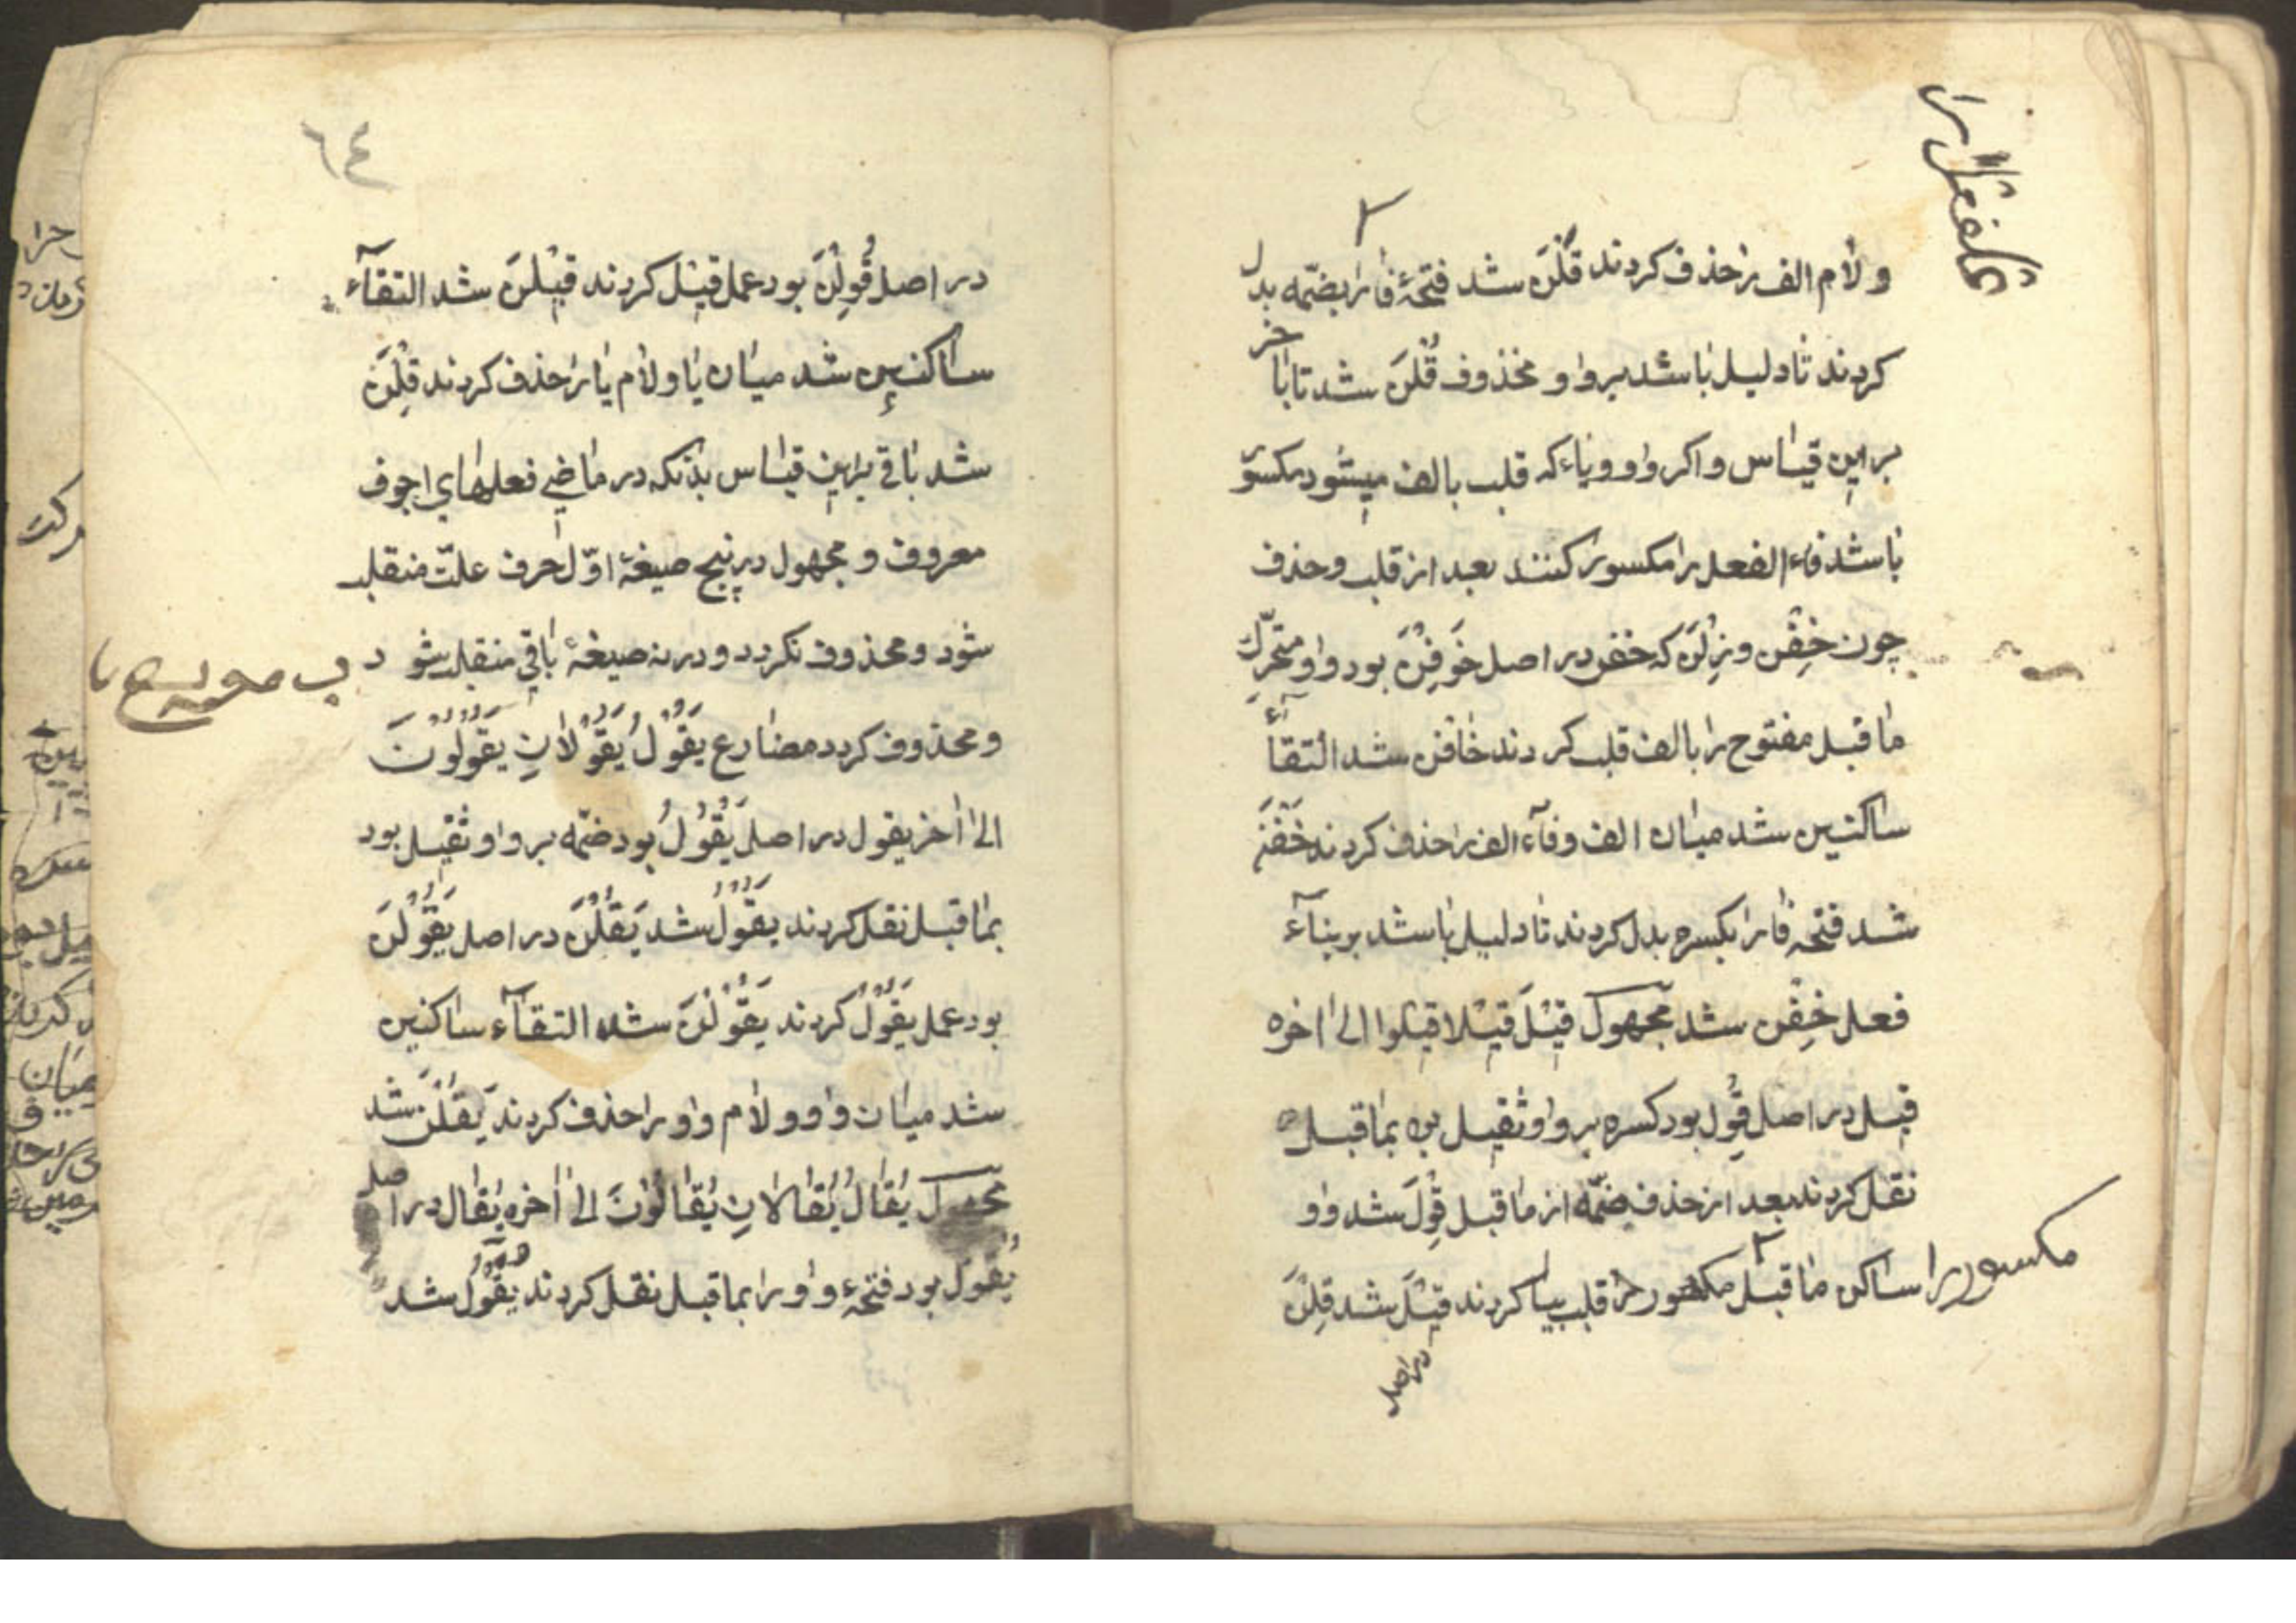 ولام الف را حذف کردند قَلْنَ شد فتحهٔ فا را بضمّه بدل
کردند تا دلیل باشد برواو محذوف قُلْنَ شد تا باخر
براین قیاس واکر واو ویاء که قلب بالف میشود مکسور
باشد فاء الفعل را مکسور کنند بعد از قلب وحذف
چون خِفْن وزِلْنَ که خفن در اصل خَوِفْنَ بود واو متحرّك
ما قبل مفتوح را بالف قلب کردند خافن شد التقاء
ساکنین شد میان الف وفآء الف را حذف کردند خَفْنَ
شد فتحه فا را بکسره بدل کردند تا دلیل باشد بر بناء
فعل خِفْن شد مجهول قِیْلَ قِیْلا قیلوا الی اخره
قیل در اصل قُوِل بود کسره بر واو ثقیل بود بما قبل
نقل کردند بعد از حذف ضمّه از ما قبل قِوْلَ شد واو
ساکن ما قبل مکسور را قلب بیا کردند قیْلَ شد قِلْنَ
مکسور را
در اصل
٦٤
در اصل قُوِلْنَ بود عمل قیْلَ کردند قیْلْنَ شد التقآء
ساکنین شد میان یا ولام یا را حذف کردند قِلْنَ
شد باقی براین قیاس بدانکه در ماضی فعلهای اجوف
معروف و مجهول در پنج صیغهٔ اوّل حرف علّت منقلب
شود ومحذوف نکردد ودر نه صیغهٔ باقی منقلب شود
ومحذوف کردد مضارع یَقُوْلُ یَقُوْلانِ یَقُوْلُوْنَ
الی اخر یقول در اصل یَقْوُلُ بود ضمّه بر واو ثقیل بود
بما قبل نقل کردند یَقُوْلُ شد یَقُلْنَ در اصل یَقْوُلْنَ
بود عمل یَقُوْلُ کردند یَقُوْلْنَ شد التقآء ساکنین
شد میان واو ولام واو را حذف کردند یَقُلْنَ شد
مجهول یُقالُ یُقالانِ یُقالُوْنَ الی اخره یُقال در اصل
یُقْوَلُ بود فتحهٔ واو را بما قبل نقل کردند یُقَوْلُ شد